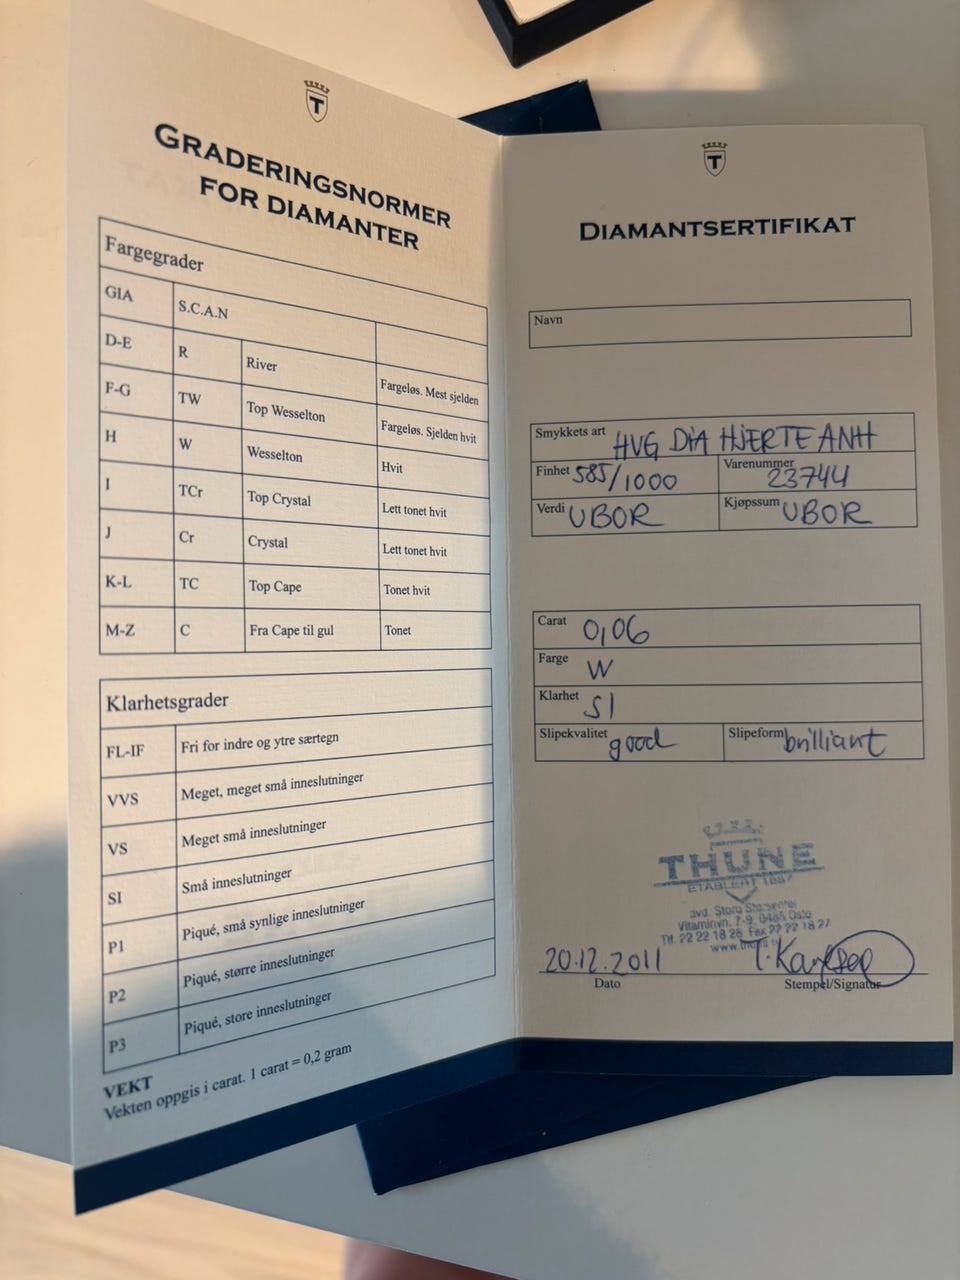 T
GRADERINGSNORMER
FOR DIAMANTER
Fargegrader
GIA S.C.A.N
D-E R River Fargeløs. Mest sjelden
F-G TW Top Wesselton Fargeløs. Sjelden hvit
H W Wesselton Hvit
I TCr Top Crystal Lett tonet hvit
J Cr Crystal Lett tonet hvit
K-L TC Top Cape Tonet hvit
M-Z C Fra Cape til gul Tonet
Klarhetsgrader
FL-IF Fri for indre og ytre særtegn
VVS Meget, meget små inneslutninger
VS Meget små inneslutninger
SI Små inneslutninger
P1 Piqué, små synlige inneslutninger
P2 Piqué, større inneslutninger
P3 Piqué, store inneslutninger
VEKT
Vekten oppgis i carat. 1 carat = 0,2 gram
T
DIAMANTSERTIFIKAT
Navn
Smykkets art HVG DIA HJERTE ANH
Finhet 585/1000 Varenummer 23744
Verdi UBOR Kjøpssum UBOR
Carat 0,06
Farge W
Klarhet SI
Slipekvalitet good Slipeform brilliant
THUNE
ETABLERT 1857
avd. Storo Storsenter
Vitaminvn. 7-9, 0485 Oslo
Tlf. 22 22 18 26 Fax 22 22 18 27
20.12.2011
Dato Stempel/Signatur